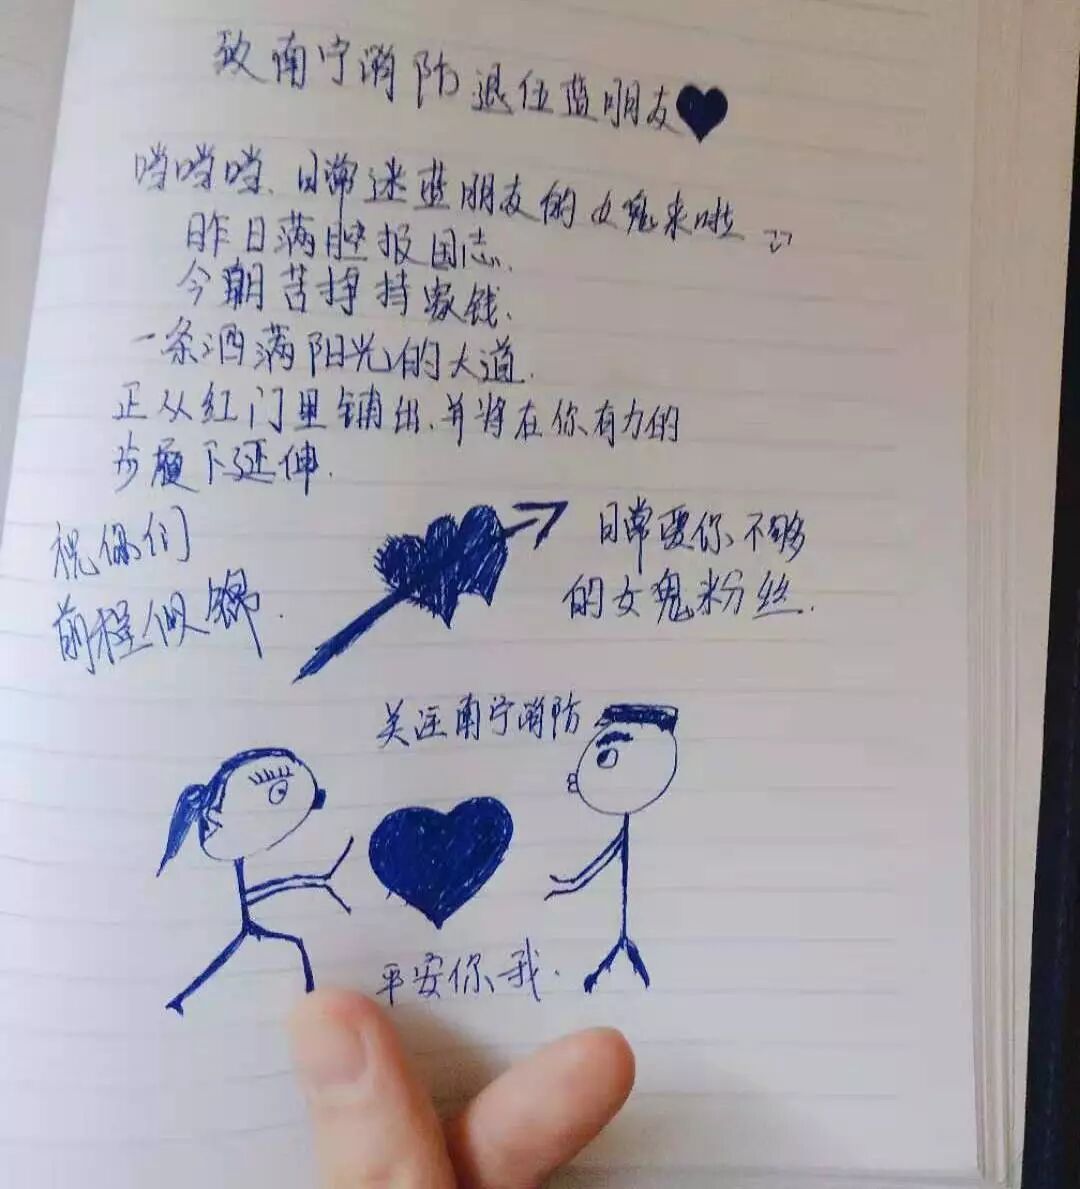 致南宁消防退伍蓝朋友
噹噹噹、日常迷蓝朋友的女鬼来啦
昨日满腔报国志.
今朝苦挣持家钱.
一条洒满阳光的大道.
正从红门里铺出.并将在你有力的
步履下延伸.
祝你们
前程似锦.
日常耍你不够
的女鬼粉丝.
关注南宁消防
平安你我.